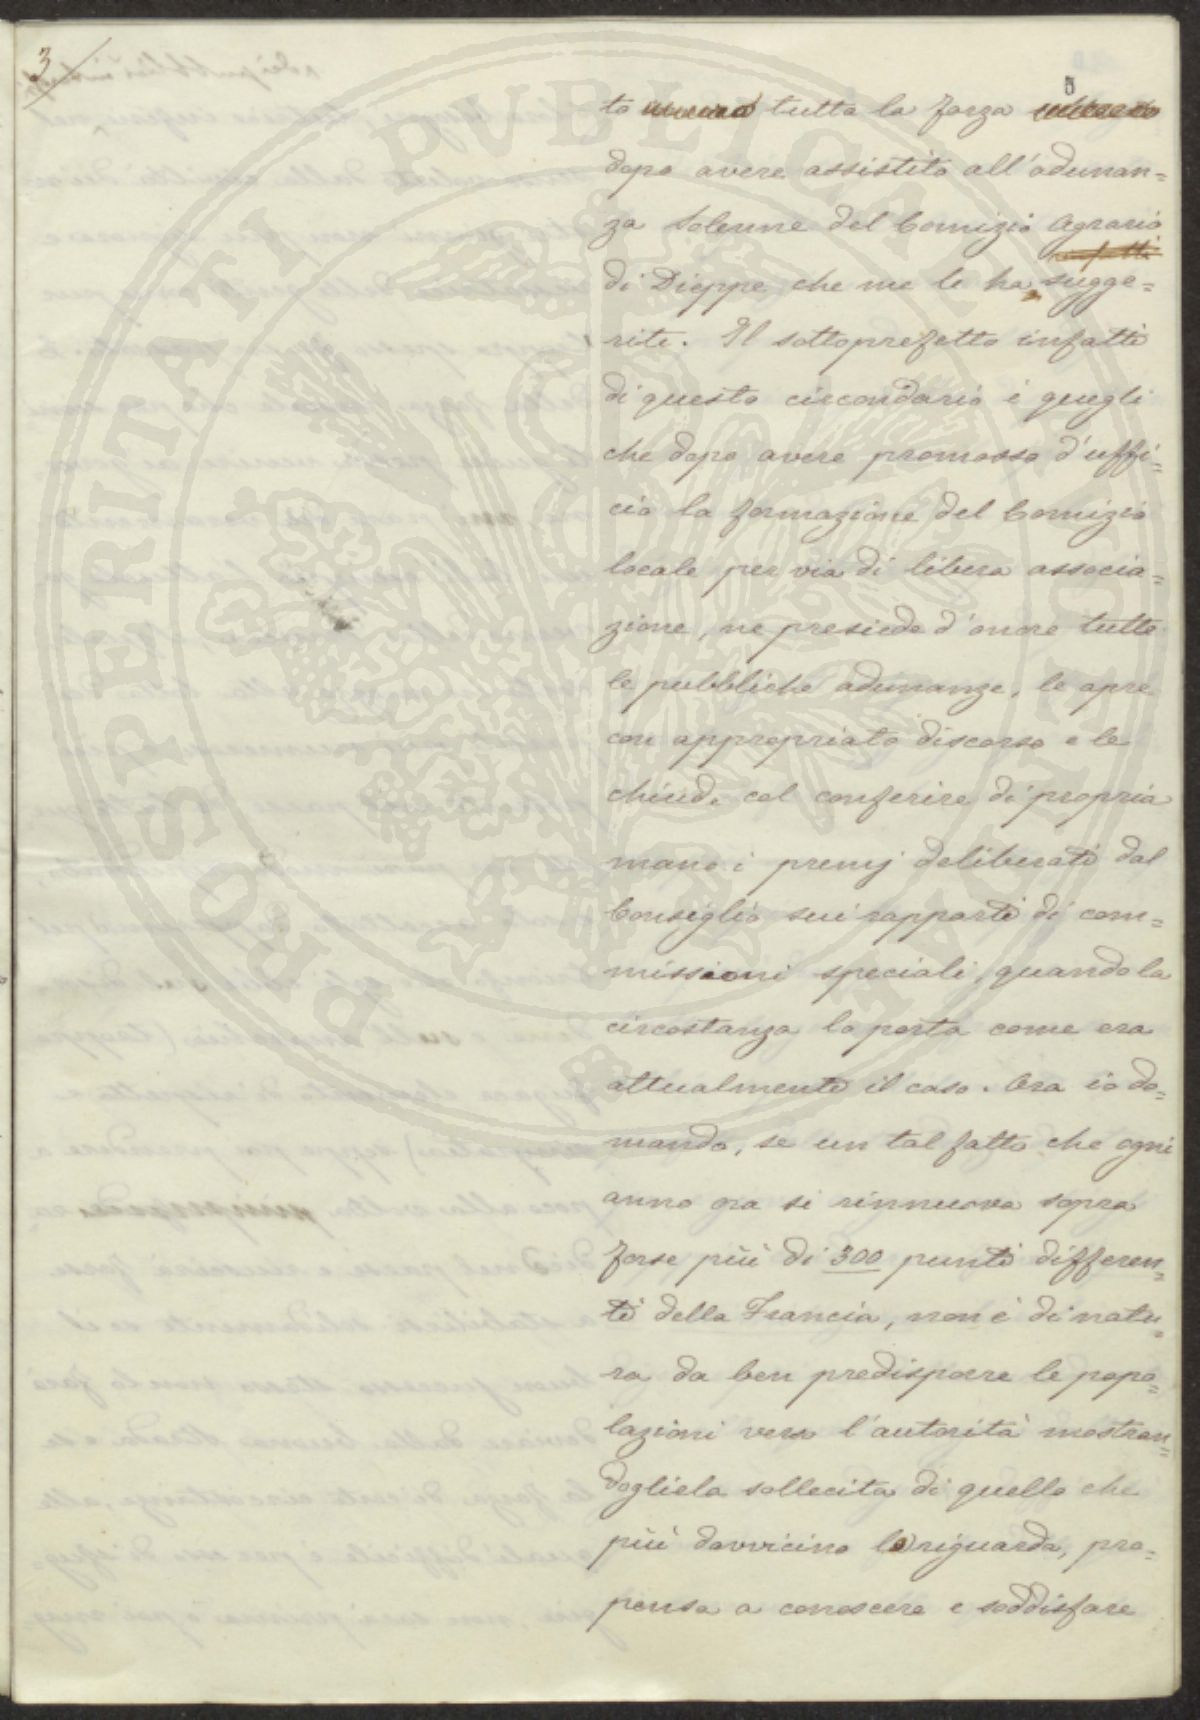 3
5
to tutta la forza
dopo avere assistito all'adunan=
za solenne del Comizio Agrario
di Dieppe che me le ha sugge=
rite. Il sottoprefetto infatti
di questo circondario è quegli
che dopo avere promosso d'uffi=
cio la formazione del Comizio
locale per via di libera associa=
zione, ne presiede d'onore tutte
le pubbliche adunanze, le apre
con appropriato discorso e le
chiude col conferire di propria
mano i premj deliberati dal
Consiglio sui rapporti di com=
missioni speciali, quando la
circostanza lo porta come era
attualmente il caso. Ora io do=
mando, se un tal fatto che ogni
anno ora si rinnuova sopra
forse più di 300 punti differen=
ti della Francia, non è di natu=
ra da ben predisporre le popo=
lazioni verso l'autorità mostran=
dogliela sollecita di quello che
più davvicino le riguarda, pro=
pensa a conoscere e soddisfare
PROSPERITATI PVBLICAE